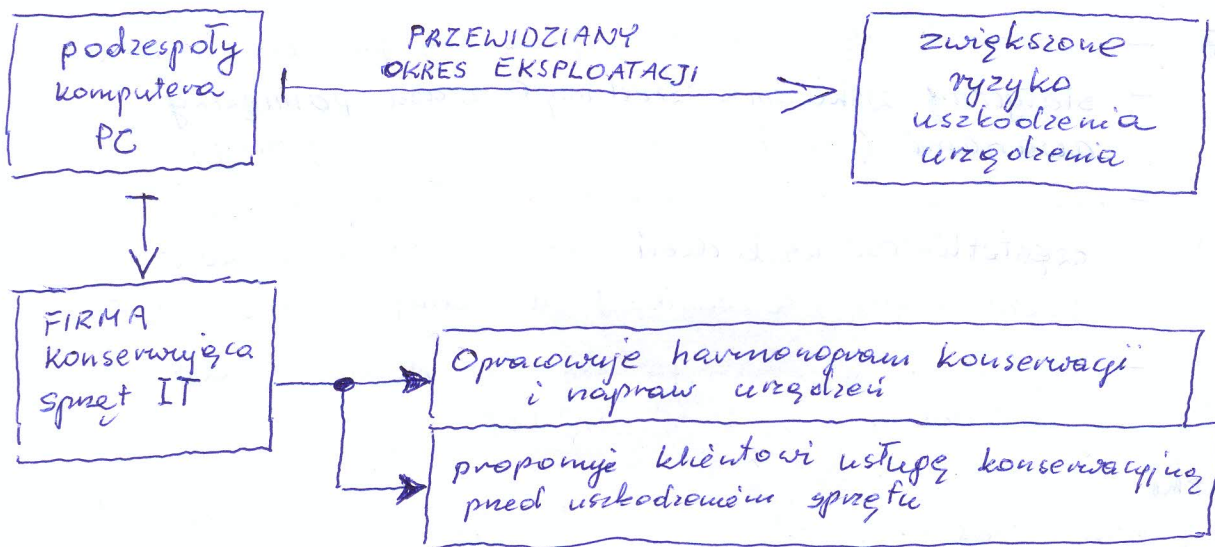 podzespoły
komputera
PC
PRZEWIDZIANY
OKRES EKSPLOATACJI
zwiększone
ryzyko
uszkodzenia
urządzenia
FIRMA
konserwująca
sprzęt IT
Opracowuje harmonogram konserwacji
i napraw urządzeń
proponuje klientowi usługę konserwacyjną
przed uszkodzeniem sprzętu